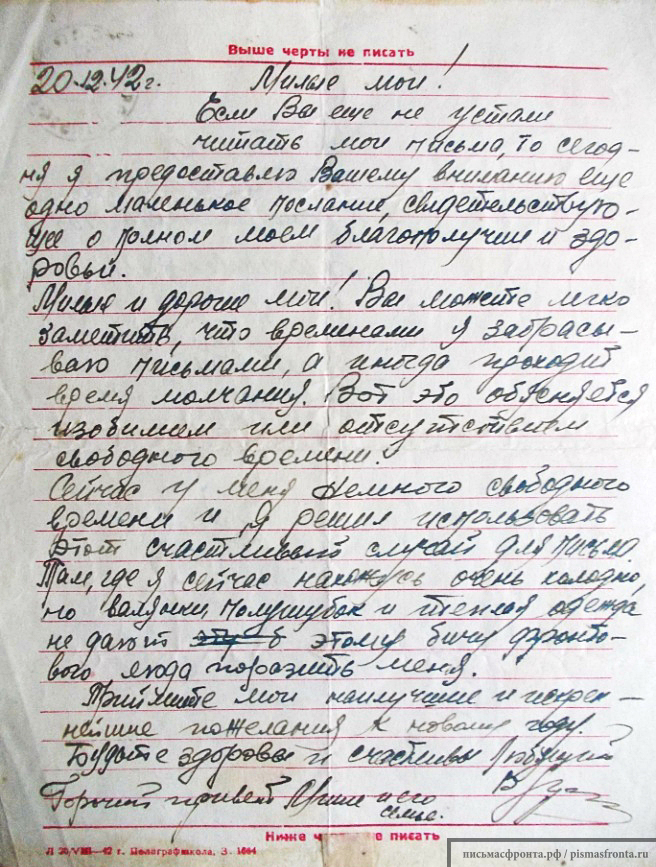 Выше черты не писать
20.12.42г. Милые мои!
Если Вы еще не устали
читать мои письма, то сегод-
ня я предоставлю Вашему вниманию еще
одно маленькое послание, свидетельствую-
щее о полном моем благополучии и здо-
ровьи.
Милые и дорогие мои! Вы можете легко
заметить, что временами я забрасы-
ваю письмами, а иногда проходит
время молчания. Вот это объясняется
изобилием или отсутствием
свободного времени.
Сейчас у меня немного свободного
времени и я решил использовать
этот счастливый случай для письма.
Там, где я сейчас нахожусь очень холодно,
но валянки, полушубок и теплая одежда
не дают этому бичу фронто-
вого люда поразить меня.
Примите мои наилучшие и искрен-
нейшие пожелания к новому году.
Будьте здоровы и счастливы Любящий
В
Горячий привет и его
семье.
Ниже черты не писать
Л 20/VIII—42 г. Полеграфшкола. З. 1664
письмасфронта.рф / pismasfronta.ru